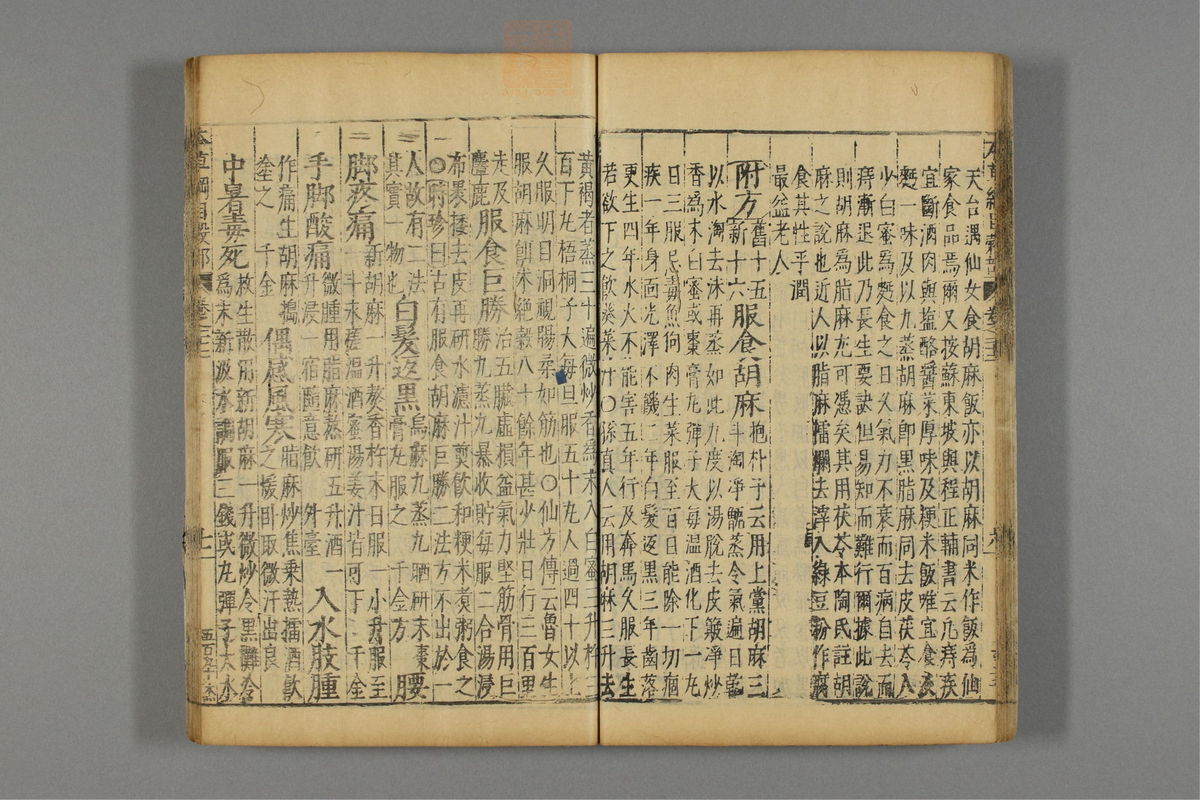 天台遇仙女食胡麻飯亦以胡麻同米作飯為仙
家食品焉爾又按蘇東坡與程正輔書云凡痔疾
宜斷酒肉與鹽酪醬菜厚味及粳米飯唯宜食淡
麪一味及以九蒸胡麻卽黑脂麻同去皮茯苓入
少白蜜為麪食之日久氣力不衰而百病自去而
痔漸退此乃長生要訣但易知而難行爾據此說
則胡麻為脂麻尤可憑矣其用茯苓本陶氏註胡
麻之說也近人以脂麻擂爛去滓入綠豆粉作腐
食其性平潤
最益老人
附方 舊十五新十六 服食胡麻 抱朴子云用上黨胡麻三斗淘淨甑蒸令氣遍日乾
以水淘去沫再蒸如此九度以湯脫去皮簸淨炒
香為末白蜜或棗膏丸彈子大每溫酒化下一丸
日三服忌毒魚狗肉生菜服至百日能除一切痼
疾一年身面光澤不饑二年白髮返黑三年齒落
更生四年水火不能害五年行及奔馬久服長生
若欲下之飲葵菜汁○孫真人云用胡麻三升去
黃褐者蒸三十遍微炒香為末入白蜜三升杵三
百下丸梧桐子大每旦服五十丸人過四十以上
久服明目洞視腸柔如筋也○仙方傳云魯女生
服胡麻餌朮絕穀八十餘年甚少壯日行三百里
走及麞鹿 服食巨勝 治五臟虛損益氣力堅筋骨用巨勝九蒸九暴收貯每服二合湯浸
布裹挼去皮再研水濾汁煎飲和粳米煑粥食之
○時珍曰古有服食胡麻巨勝二法方不出於一
人故有二法其實一物也 白髮返黑 烏麻九蒸九晒研末棗膏丸服之 千金方 腰
腳疼痛 新胡麻一升熬香杵末日服一小升服至一斗永瘥溫酒蜜湯姜汁皆可下 千金
手腳酸痛 微腫用脂麻熬研五升酒一升浸一宿隨意飲 外臺 入水肢腫
作痛生胡麻搗塗之 千金 偶感風寒 脂麻炒焦乘熱擂酒飲之煖臥取微汗出良
中暑毒死 救生散用新胡麻一升微炒令黑攤冷為末新汲水調服三錢或丸彈子大水
本草綱目穀部 卷二十二